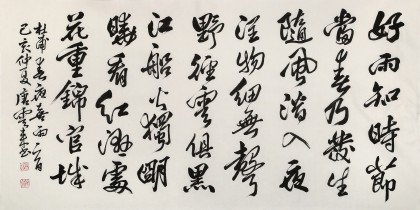 好雨知時節
當春乃發生
隨風潛入夜
潤物細無聲
野徑雲俱黑
江船火獨明
曉看紅濕處
花重錦官城
杜甫春夜喜雨一首
己亥仲夏